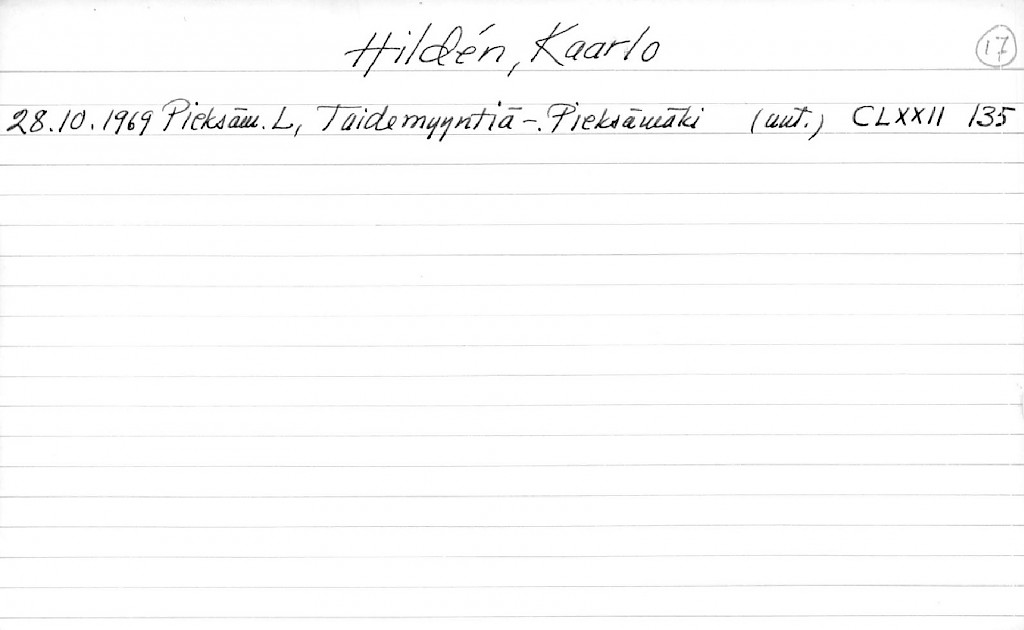 Hildén, Kaarlo
17
28.10.1969 Pieksäm. L, Taidemyyntiä -. Pieksämäki (unt.) CLXXII 135